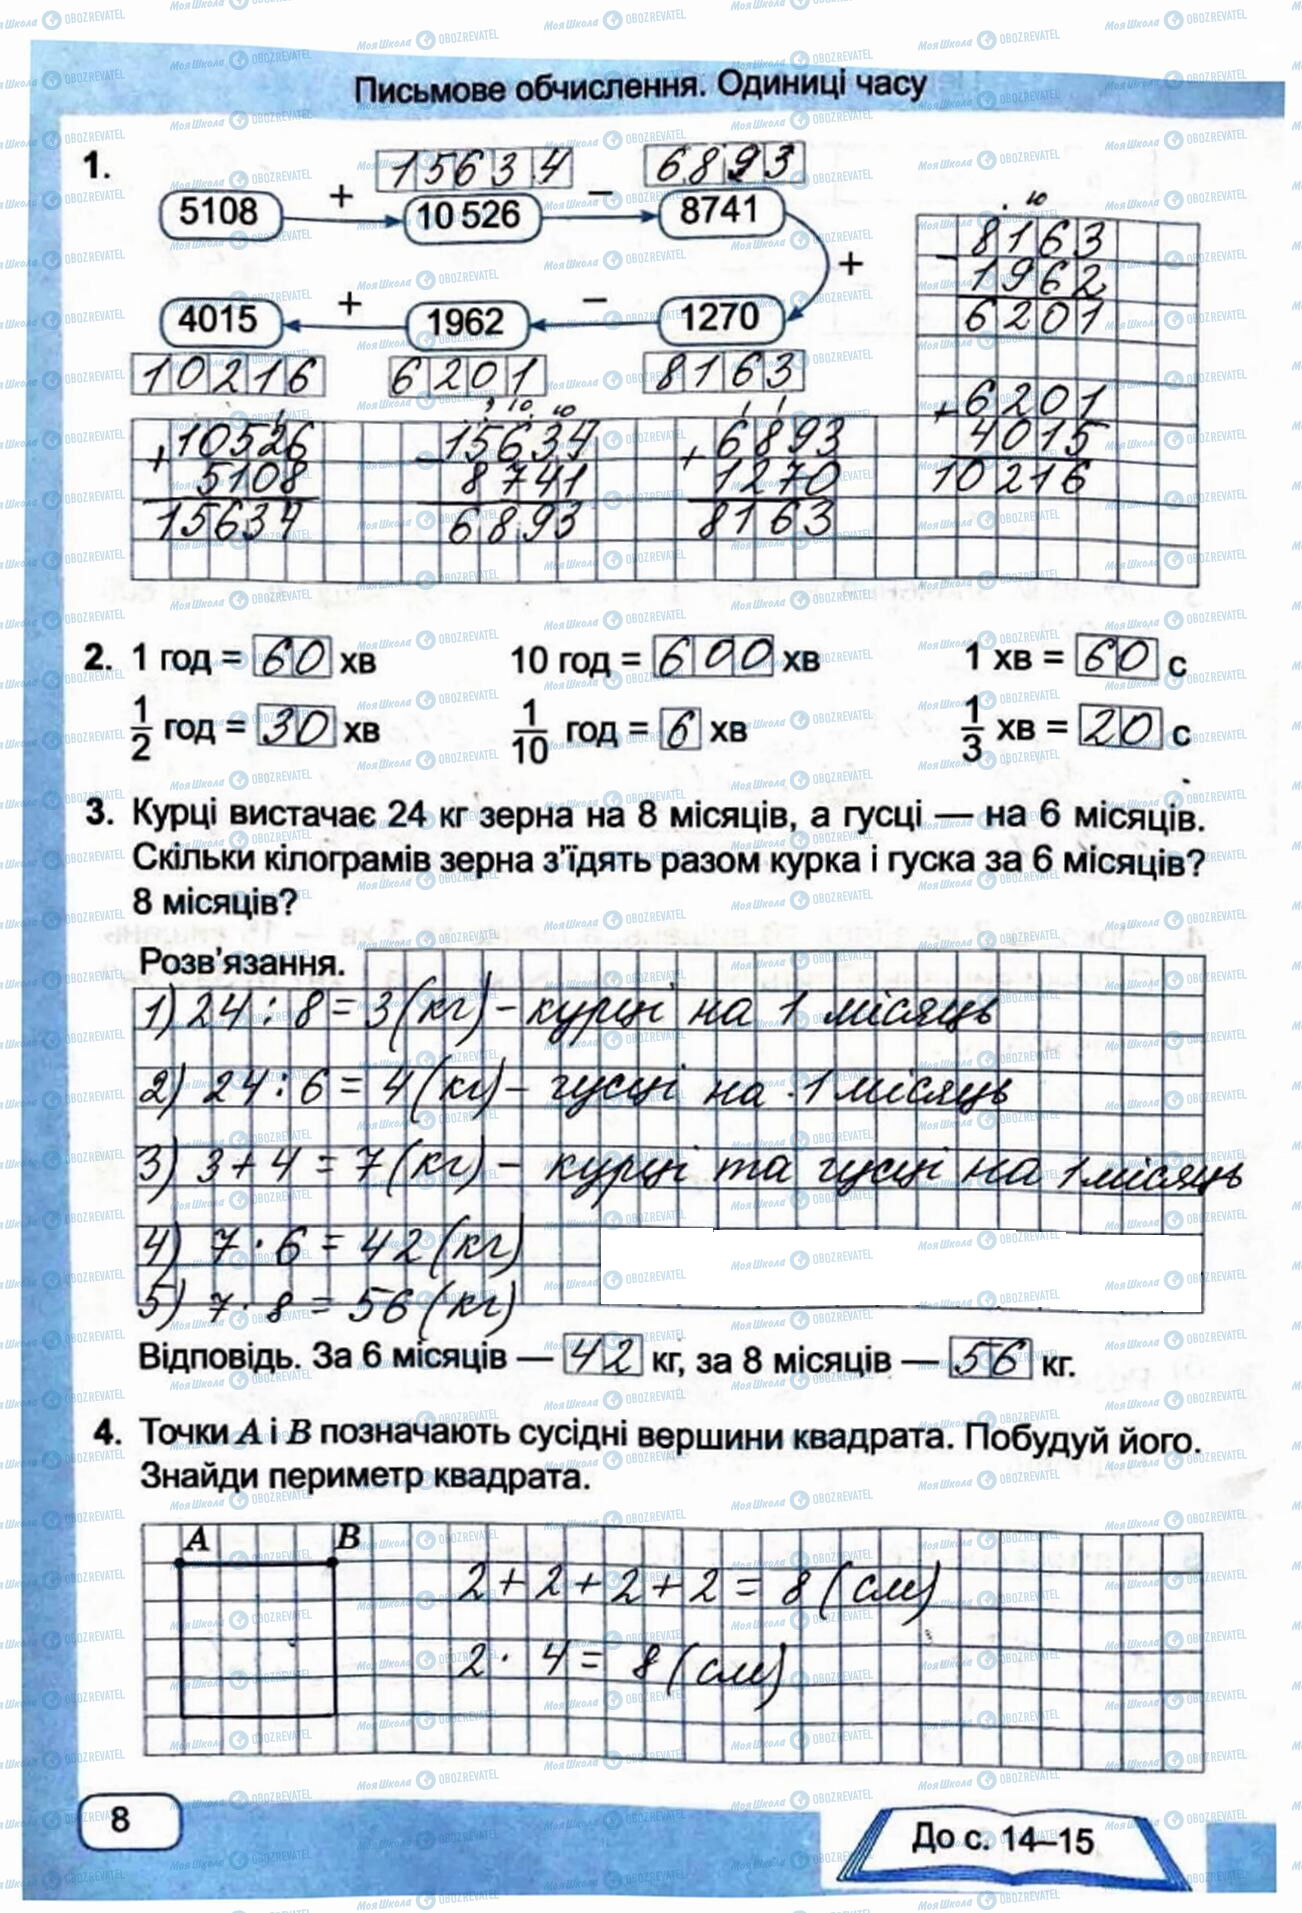 Письмове обчислення. Одиниці часу
1.
15634 6893
5108 + 10 526 − 8741
+
4015 + 1962 − 1270
10216 6201 8163
10
8163
− 1962
6201
+ 6201
4015
10216
1
10526
+ 5108
15634
10 10
15634
− 8741
6893
1 1
6893
+ 1270
8163
2. 1 год = 60 хв 10 год = 600 хв 1 хв = 60 с
1/2 год = 30 хв 1/10 год = 6 хв 1/3 хв = 20 с
3. Курці вистачає 24 кг зерна на 8 місяців, а гусці — на 6 місяців.
Скільки кілограмів зерна з'їдять разом курка і гуска за 6 місяців?
8 місяців?
Розв'язання.
1) 24 : 8 = 3 (кг) – курці на 1 місяць
2) 24 : 6 = 4 (кг) – гусці на 1 місяць
3) 3 + 4 = 7 (кг) – курці та гусці на 1 місяць
4) 7 · 6 = 42 (кг)
5) 7 · 8 = 56 (кг)
Відповідь. За 6 місяців — 42 кг, за 8 місяців — 56 кг.
4. Точки A і B позначають сусідні вершини квадрата. Побудуй його.
Знайди периметр квадрата.
A B
2 + 2 + 2 + 2 = 8 (см)
2 · 4 = 8 (см)
8
До с. 14–15
МояШкола OBOZREVATEL